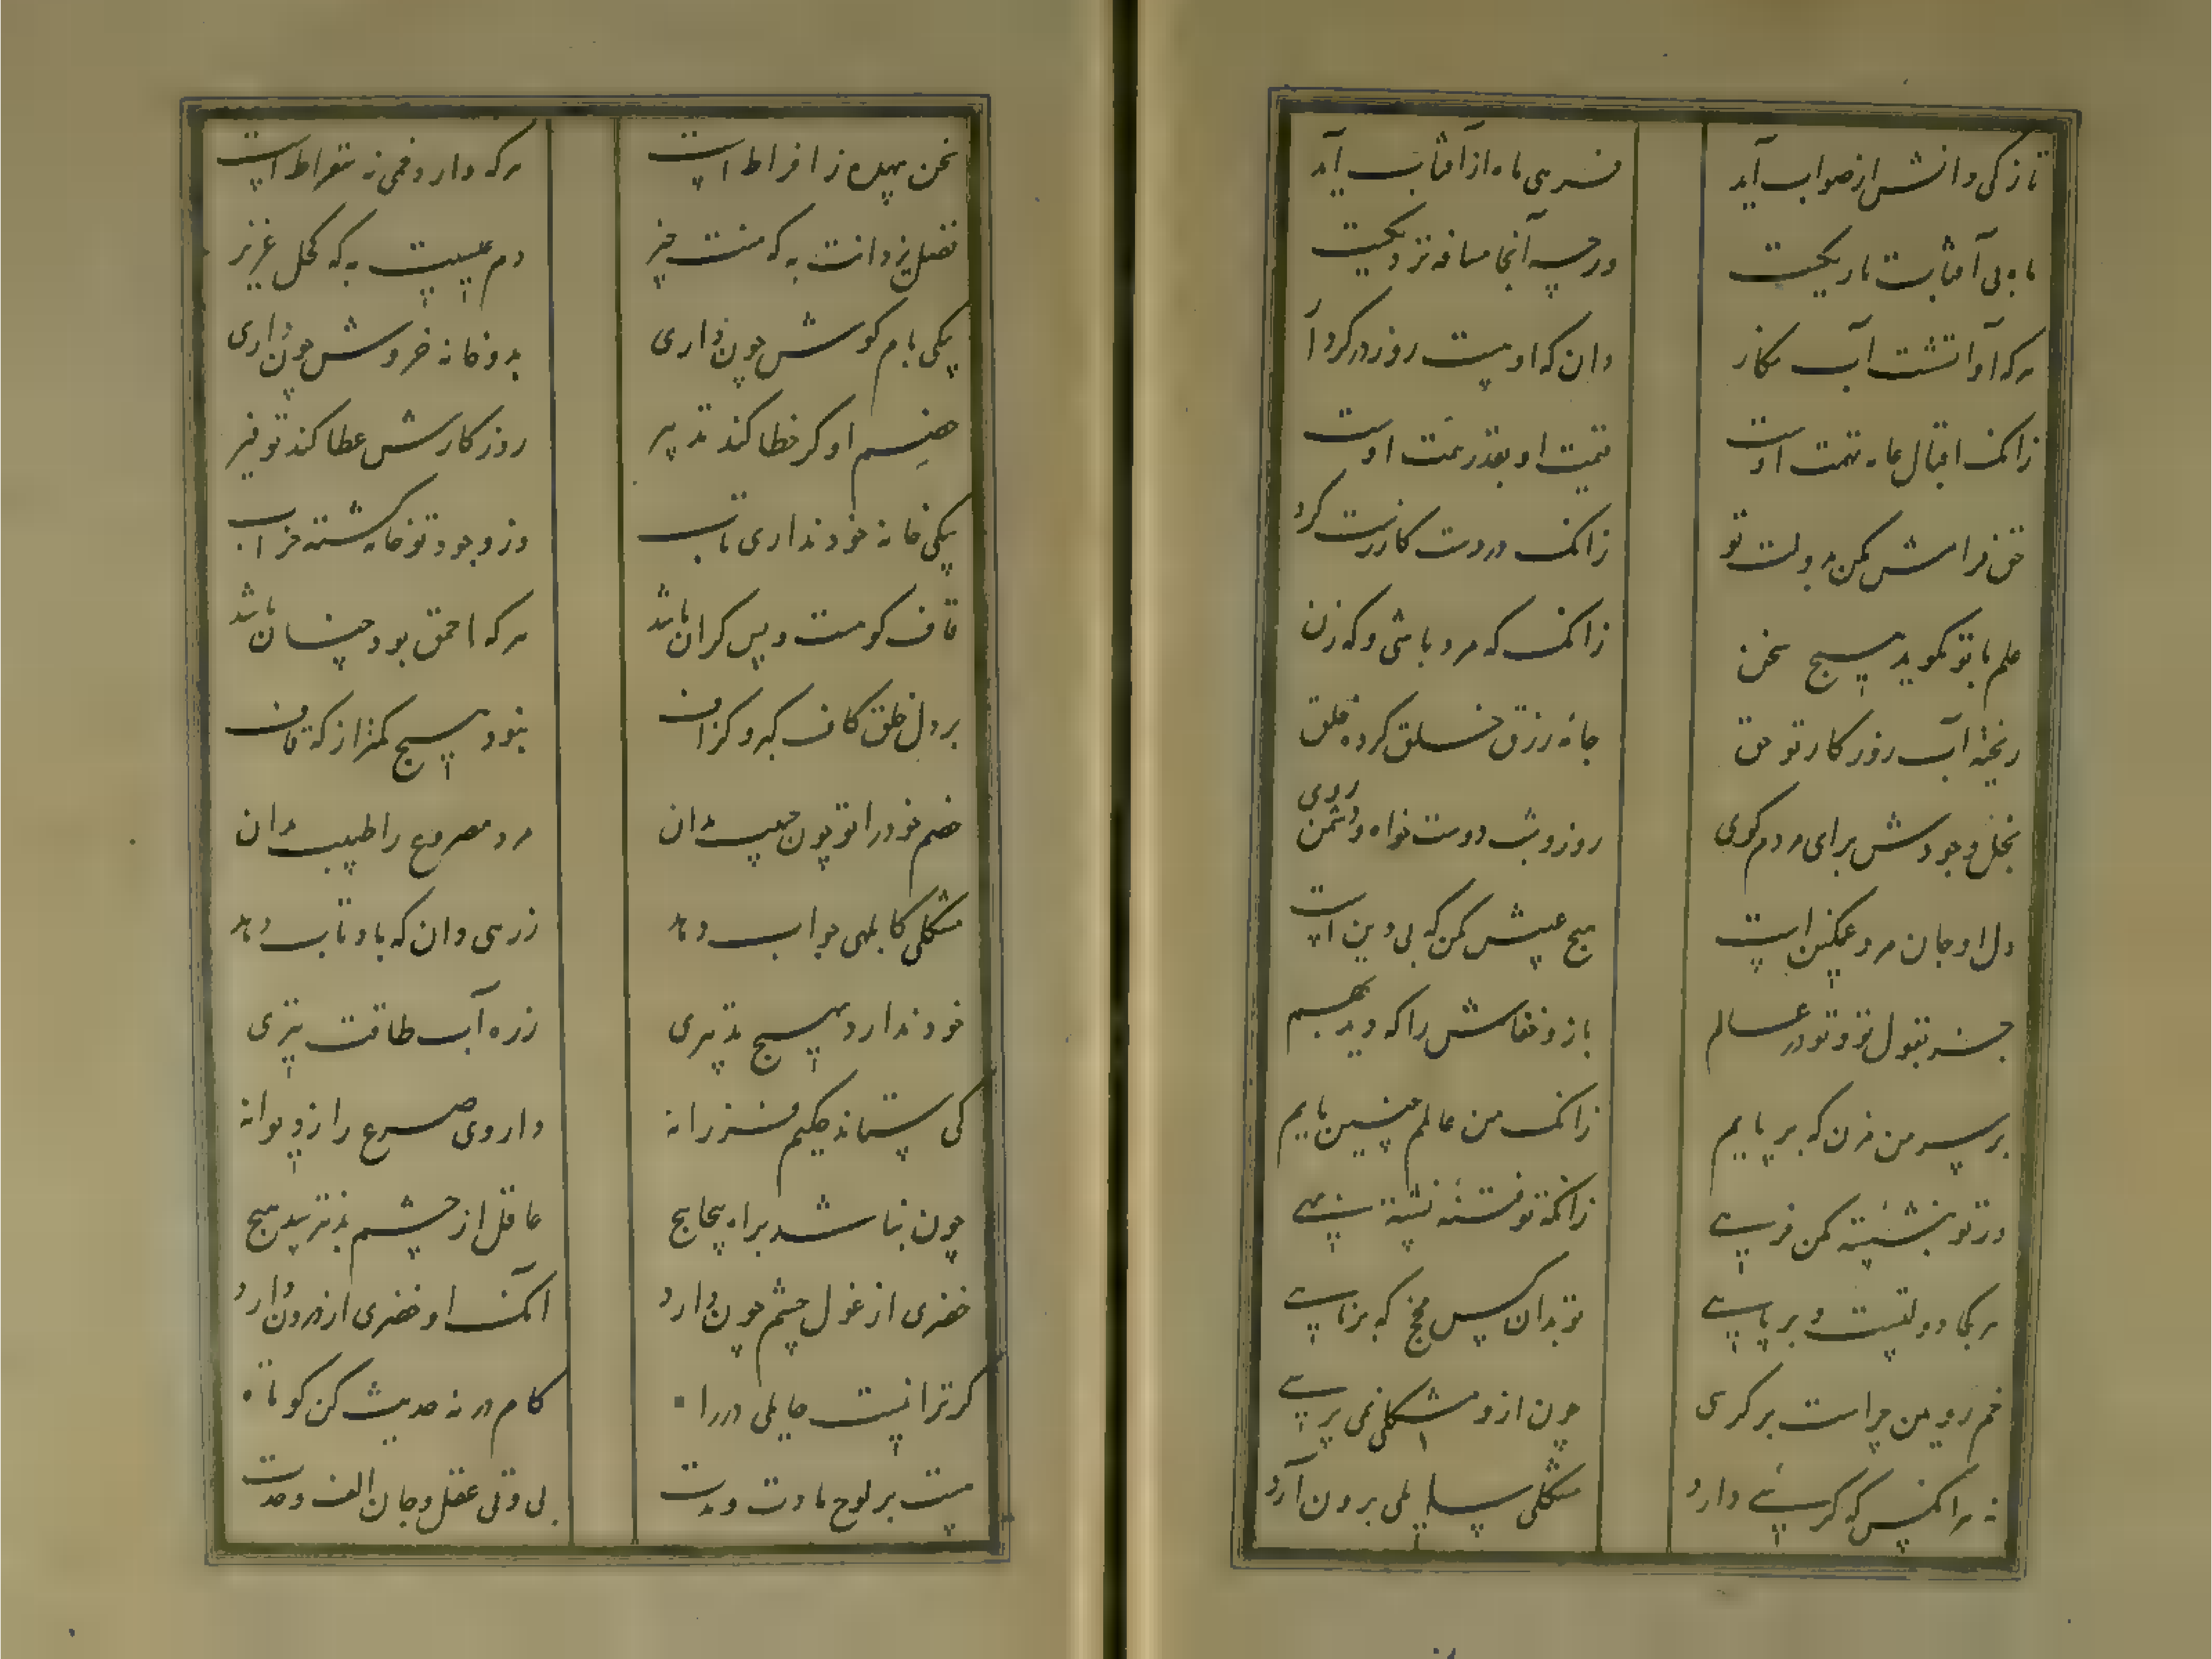 تازکی دانش از صواب آید فربهی ماه از آفتاب آید
ماه بی آفتاب تاریکیست ورچه آنجا مسافه نزدیکیست
هر که آواتشت آب مکار وان که او نیست روز در کردار
زانک اقبال عامه تهمت اوست قیمت او بقدر همت اوست
حق فرامش مکن بدولت تو زانک دردت کازرست کرد
علم با تو نکوید هیچ سخن زانک که مرد باشی و که زن
ریخته آب روز کار تو حق جامه رزق خلق کرده خلق
بخل وجودش برای مردم کوی روز و شب دوست خواه و دشمن روی
دل او جان مرد غمکین است هیچ عیبش مکن که بی دین است
جز بقول تو و تو در عالم باز و خفاش را که دید بهم
بر سر من مزن که بر پایم زانک من عالم چنین نایم
ور تو بنشسته مکن خرسی زانکه تو فتنه نشسته بهی
هر کجا دولتیست و برناسی تو بدان کس مخخ که برناسی
خم رویین چراست بر کرسی چون ازو مشکلی نمی پرسی
نه هر انکس که کرسیی دارد مشکلی سایلی برون آرد
سخن بیهده ز افراط است هر که دارو فمی نه سقراط است
فضل یزدانت به که منت چیز دم عیسیت به که کحل عزیز
یکی بام کوش چون داری بدو خانه خروش چون داری
خصم او کر خطا کند تدبیر روز کارش عطا کند توفیر
یکی خانه خود نداری تاب وز وجود تو خانه کشته خراب
قاف کوهست و بس کران باشد هر که احمق بود چنان باشد
بر دل خلق کاف کبر و کزاف نبود هیچ کمتر از که قاف
خصم خود را تو چون حبیب مدان مرد مصروع را طبیب مدان
مشکلی کابلهی جواب دهد زرهی دان که باد تاب دهد
خود ندارد هیچ تدبیری زره آب طاقت تیری
کی ستاند حکیم فرزانه داروی صرع را ز دیوانه
چون نباشد براه پیچاپیچ عاقل از چشم بد نترسد هیچ
خضری از غول چشم چون دارد آنک او خضری از درون دارد
کر ترا نیست حایلی در راه کام در نه حدیث کن کوتاه
هست بر لوح مادت و مدت بی وتی عقل و جان الف وحدت